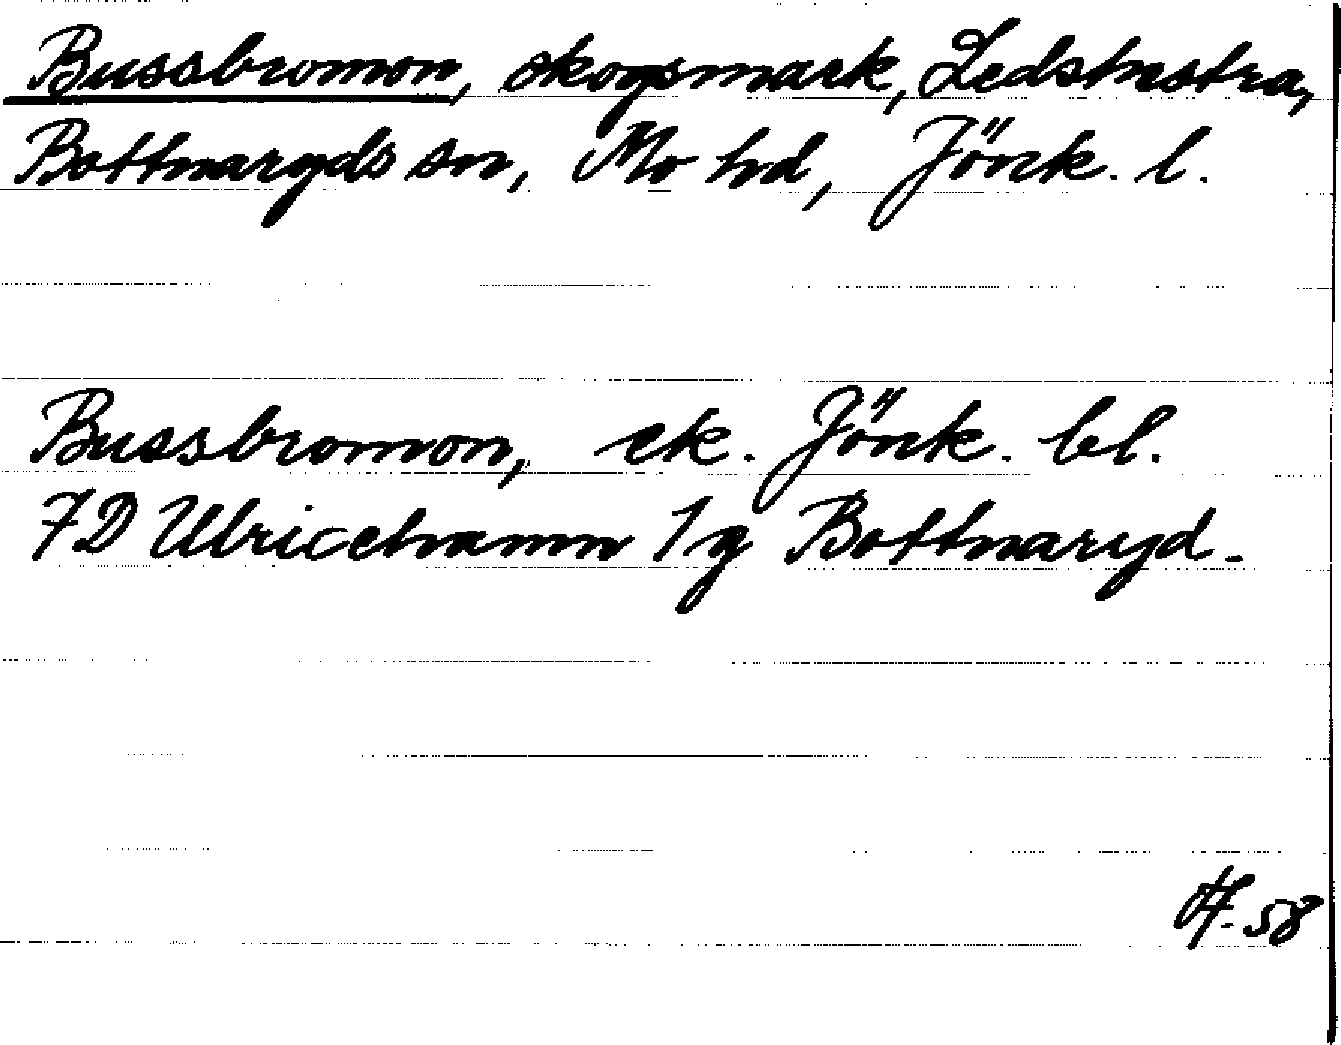 Bussbromon, skogsmark, Ledstrestra,
Bottnaryds sn, Mo hd, Jönk. l.
Bussbromon, ek. Jönk. bl.
7D Ulricehamn 1g Bottnaryd.
58